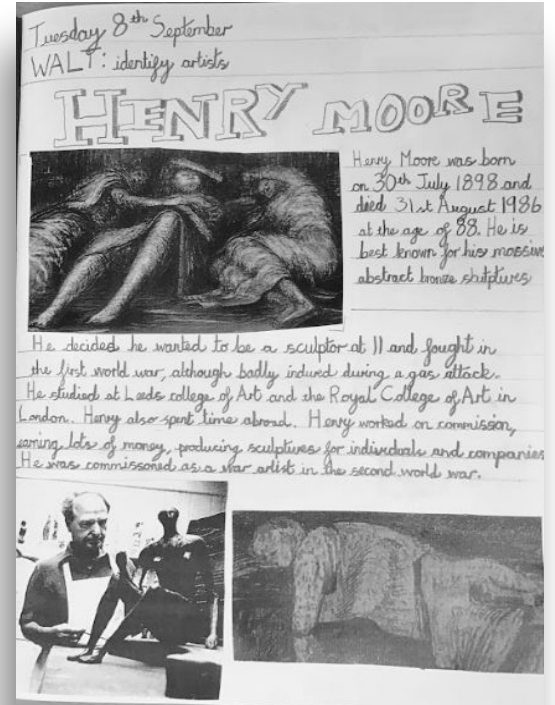 Tuesday 8th September
WALT: identify artists
HENRY MOORE
Henry Moore was born
on 30th July 1898 and
died 31st August 1986
at the age of 88. He is
best known for his massive
abstract bronze sculptures
He decided he wanted to be a sculptor at 11 and fought in
the first world war, although badly indured during a gas attack.
He studied at Leeds college of Art and the Royal College of Art in
London. Henry also spent time abroad. Henry worked on commission,
earning lots of money, producing sculptures for individuals and companies
He was commissoned as a war artist in the second world war.